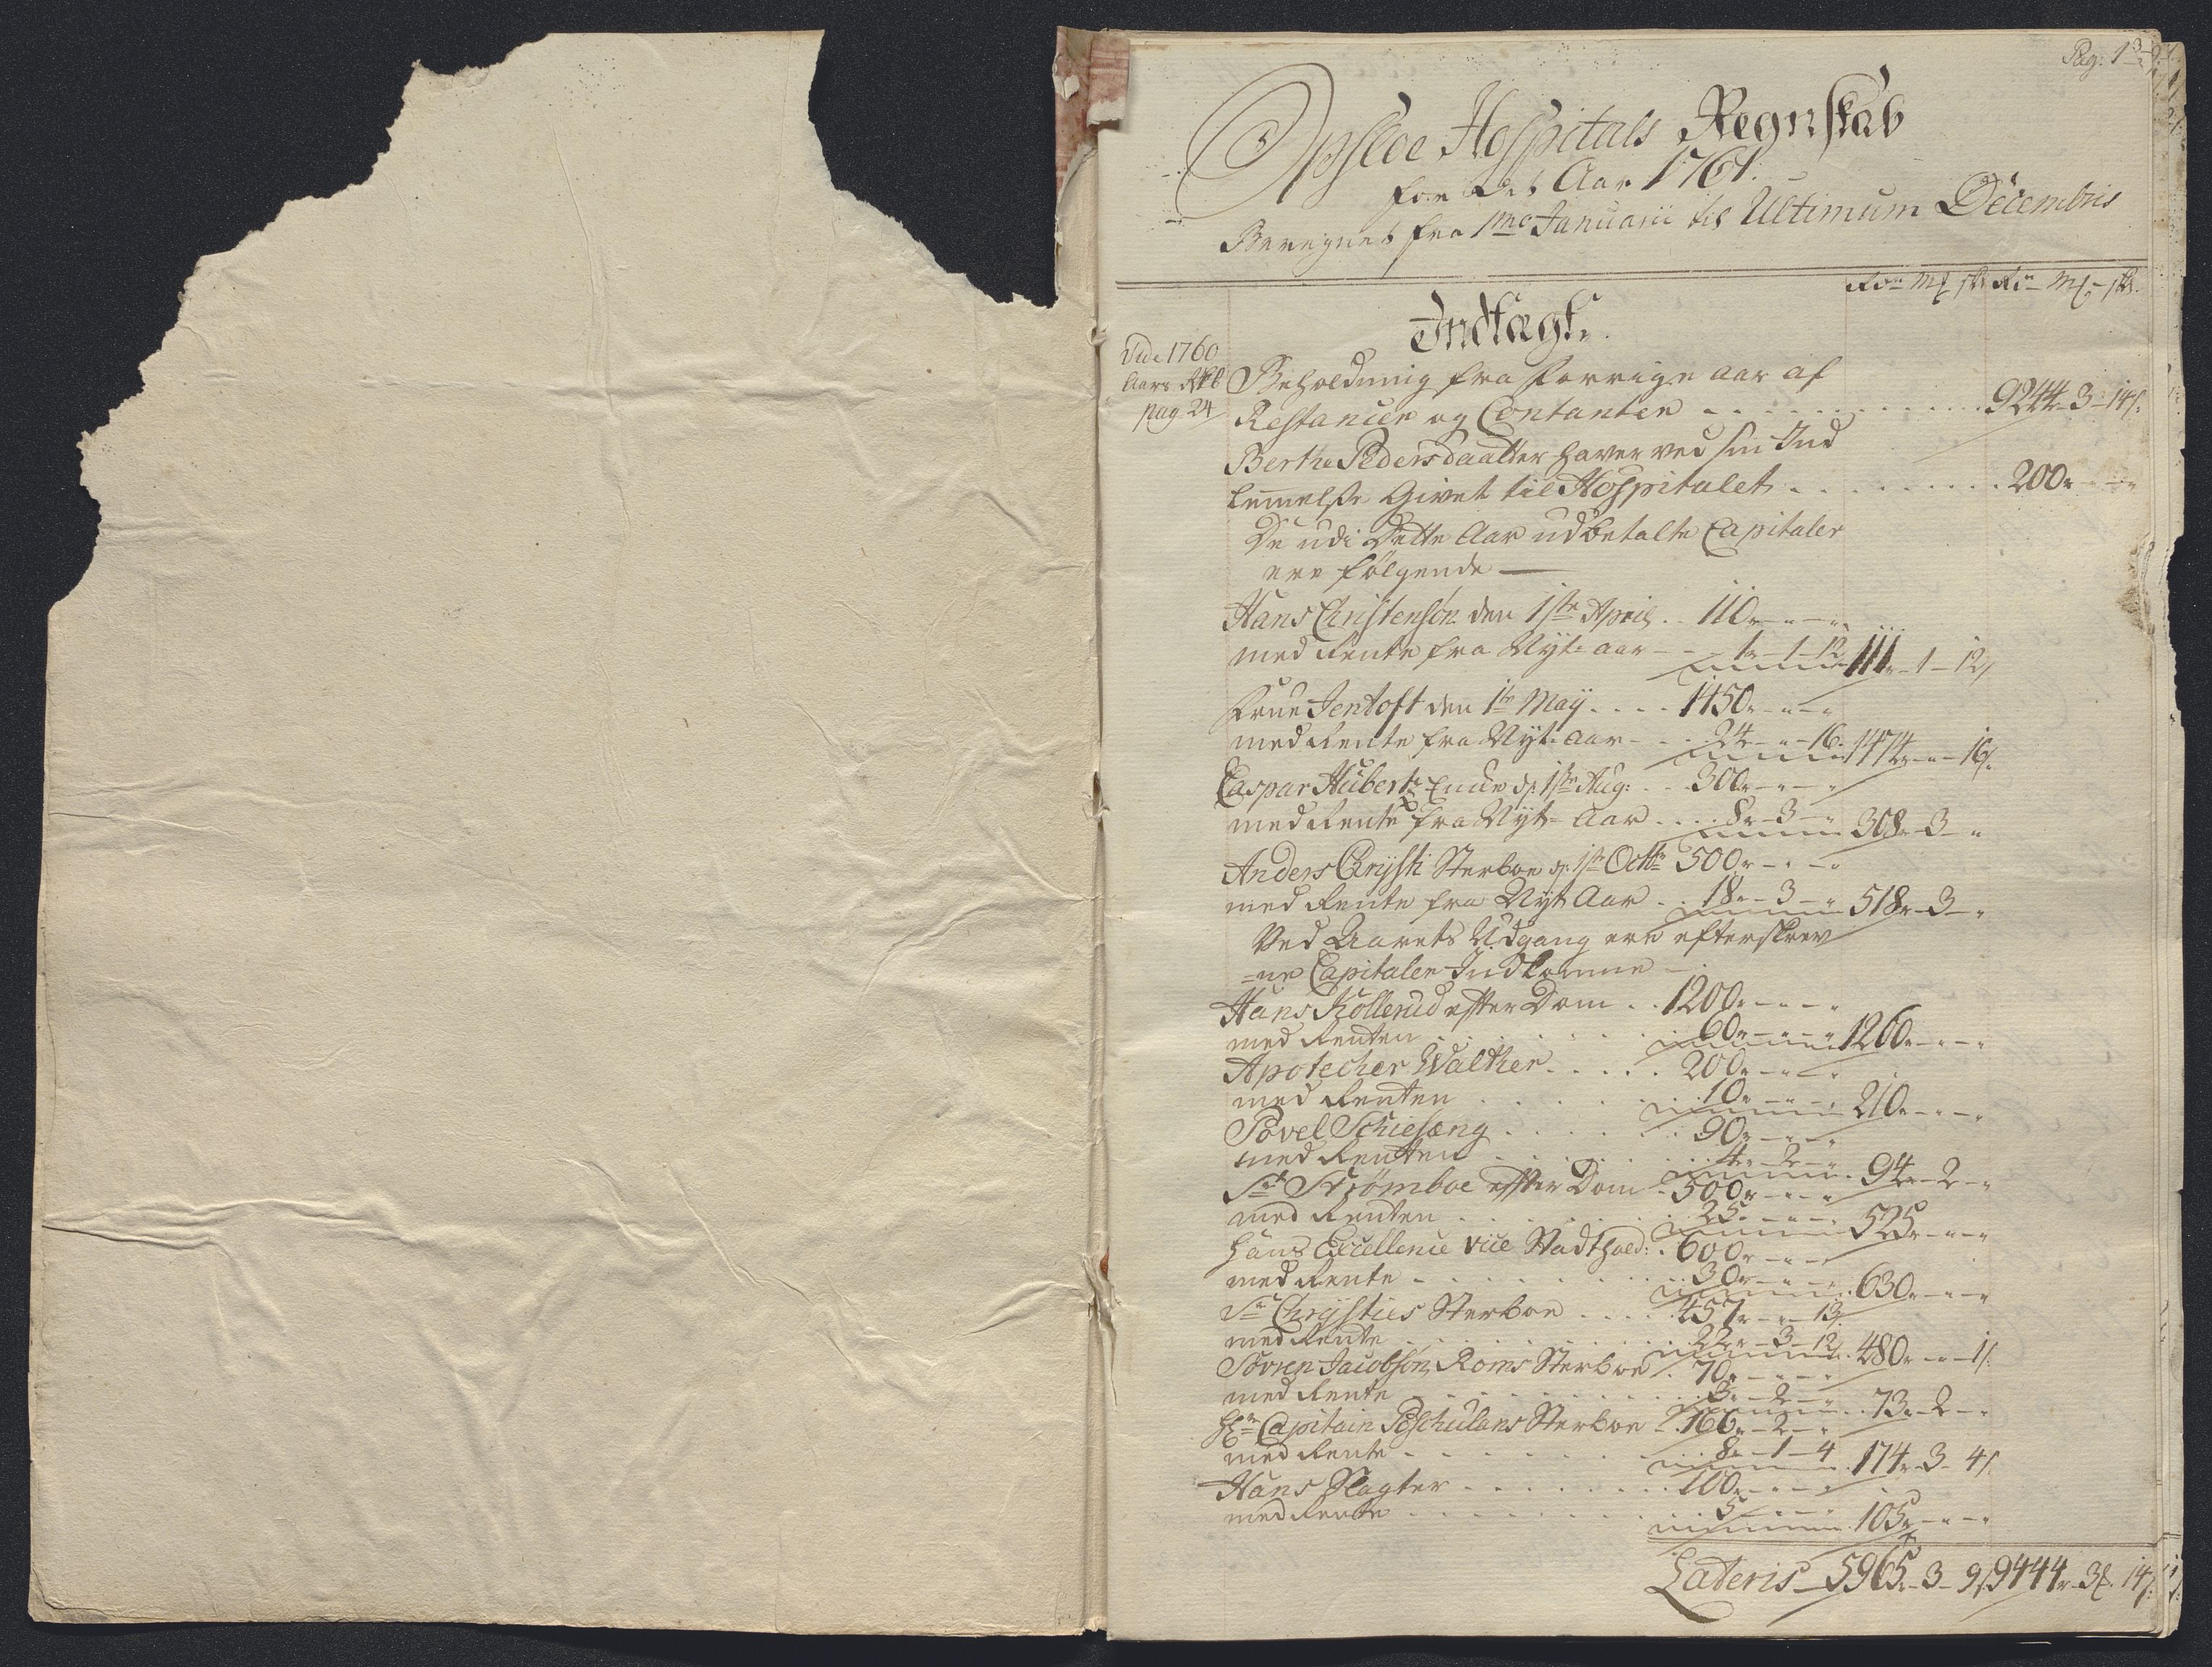 Pag: 1
Opsloe Hospitals Regnskab
for det Aar 1761.
Beregnet fra 1mo Januarii til Ultimum Decembris
Rdr Mk sk Rdr Mk sk
Indtægt.
Vide 1760
Aars Rgb
pag. 24
Beholdning fra forrige aar af
Restancer og Contanter - - - 9244 - 3 - 14 s.
Berthe Pedersdaatter haver ved sin Ind
lemmelse Givet til Hospitalet - - - 200 - " - "
De udi Dette Aar udbetalte Capitaler
ere følgende —
Hans Christensøn den 1ste April - 110 - " - "
med Rente fra Nyt-aar - - 1 - 1 - 12 111 - 1 - 12
Frue Jentoft den 1te May - - - 1450 - " - "
med Rente fra Nyt-aar - - 24 - " - 16. 1474 - " - 16.
Caspar Huberts Enke d: 1ste Aug: - - 300 - " - "
med Rente fra Nyt-Aar - - - 8 - 3 - " 308 - 3 - "
Anders Chrysti Sterboe d: 1ste Octbr 500 - " - "
med Rente fra Nyt Aar - - 18 - 3 - " 518 - 3 - "
Ved Aarets Udgang ere efterskrev
=ne Capitaler Indkomne -
Hans Kollerud efter Dom - - 1200 - " - "
med Renten - - - 60 - " - " 1260 - " - "
Apotecher Walther - - - 200 - " - "
med Renten - - - 10 - " - " 210 - " - "
Povel Schiesæng - - - 90 - " - "
med Renten - - - 4 - 2 - " 94 - 2 - "
Sr Strømboe efter Dom - 500 - " - "
med Renten - - - 25 - " - " 525 - " - "
Hans Excellence Vice Stadthold: - 600 - " - "
med Rente - - - 30 - " - " 630 - " - "
Sr Chrysties Sterboe - - - 457 - " - 13
med Rente - - - 22 - 3 - 12 480 - " - 1 s.
Sørren Jacobsøn Roms Sterboe - 70 - " - "
med Rente - - - 3 - 2 - " 73 - 2 - "
Hr Capitain Poschulans Sterboe - 166 - 2 - "
med Rente - - - 8 - 1 - 4 174 - 3 - 4 s.
Hans Slagter - - - 100 - " - "
med Rente - - - 5 - " - " 105 - " - "
Lateris - 5965 - 3 - 9 s 9444 - 3 - 14 s.